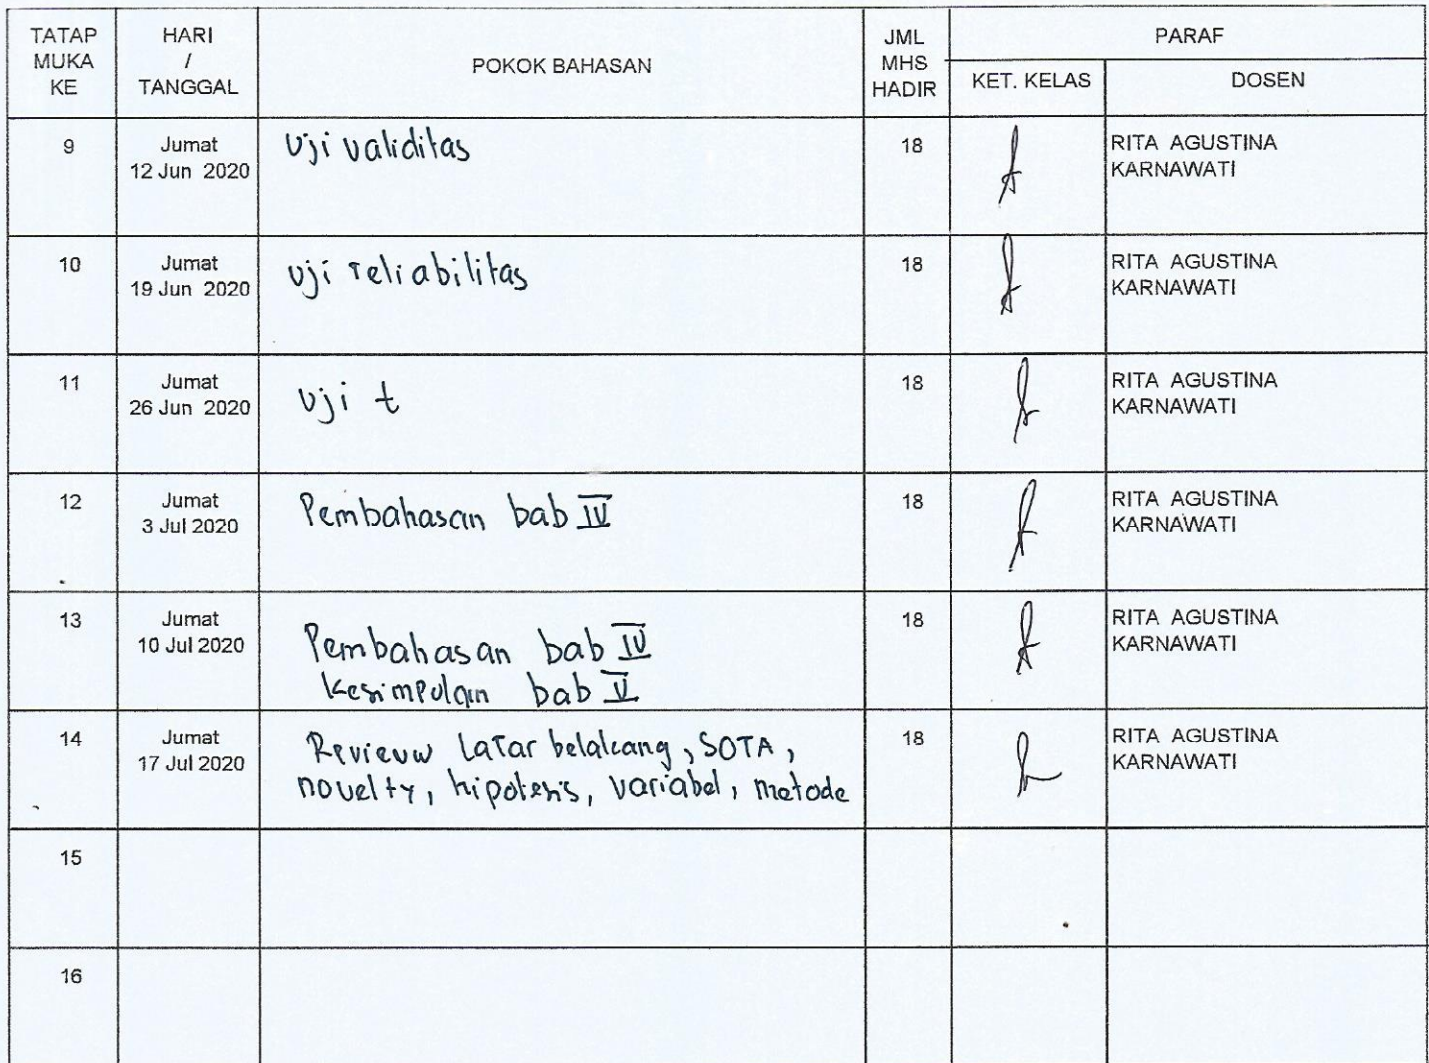 TATAP MUKA KE
HARI / TANGGAL
POKOK BAHASAN
JML MHS HADIR
PARAF
KET. KELAS
DOSEN
9
Jumat
12 Jun 2020
Uji validitas
18
RITA AGUSTINA
KARNAWATI
10
Jumat
19 Jun 2020
Uji reliabilitas
18
RITA AGUSTINA
KARNAWATI
11
Jumat
26 Jun 2020
Uji t
18
RITA AGUSTINA
KARNAWATI
12
Jumat
3 Jul 2020
Pembahasan bab IV
18
RITA AGUSTINA
KARNAWATI
13
Jumat
10 Jul 2020
Pembahasan bab IV
Kesimpulan bab V
18
RITA AGUSTINA
KARNAWATI
14
Jumat
17 Jul 2020
Revieuw Latar belakang, SOTA,
novelty, hipotesis, variabel, metode
18
RITA AGUSTINA
KARNAWATI
15
16